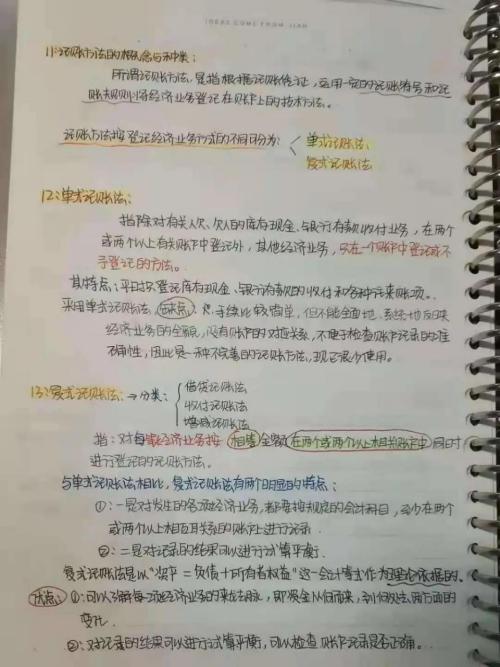 IDEAS COME FROM JIAN
11:记账方法的概念与种类:
所谓记账方法,是指根据记账凭证,运用一定的记账符号和记
账规则,将经济业务登记在账户上的技术方法。
记账方法按登记经济业务方式的不同可分为:
单式记账法
复式记账法
12:单式记账法:
指除对有关人欠、欠人的库存现金、与银行存款收付业务,在两个
或两个以上有关账户中登记外,其他经济业务,只在一个账户中登记或不
予登记的方法。
其特点:平时只登记库存现金、银行存款的收付和各种往来账项。
采用单式记账法,缺点:手续比较简单,但不能全面地、系统地反映
经济业务的全貌,没有账户的对应关系,不便于检查账户记录的准
确性,因此是一种不完善的记账方法,现已很少使用。
13:复式记账法:→分类:
借贷记账法
收付记账法
增减记账法
指:对每项经济业务按相等金额在两个或两个以上相关账户中同时
进行登记的记账方法。
与单式记账法相比,复式记账法有两个明显的特点:
①:一是对发生的各项经济业务,都要按规定的会计科目,至少在两个
或两个以上相互关系的账户上进行记录.
②:二是对记录的结果可以进行试算平衡.
复式记账法是以"资产=负债+所有者权益"这一会计等式作为理论依据的。
优点:①:可以了解每项经济业务的来龙去脉,即资金从何而来,到何处去两方面的
变化.
②:对记录的结果可以进行试算平衡,可以检查账户记录是否正确。